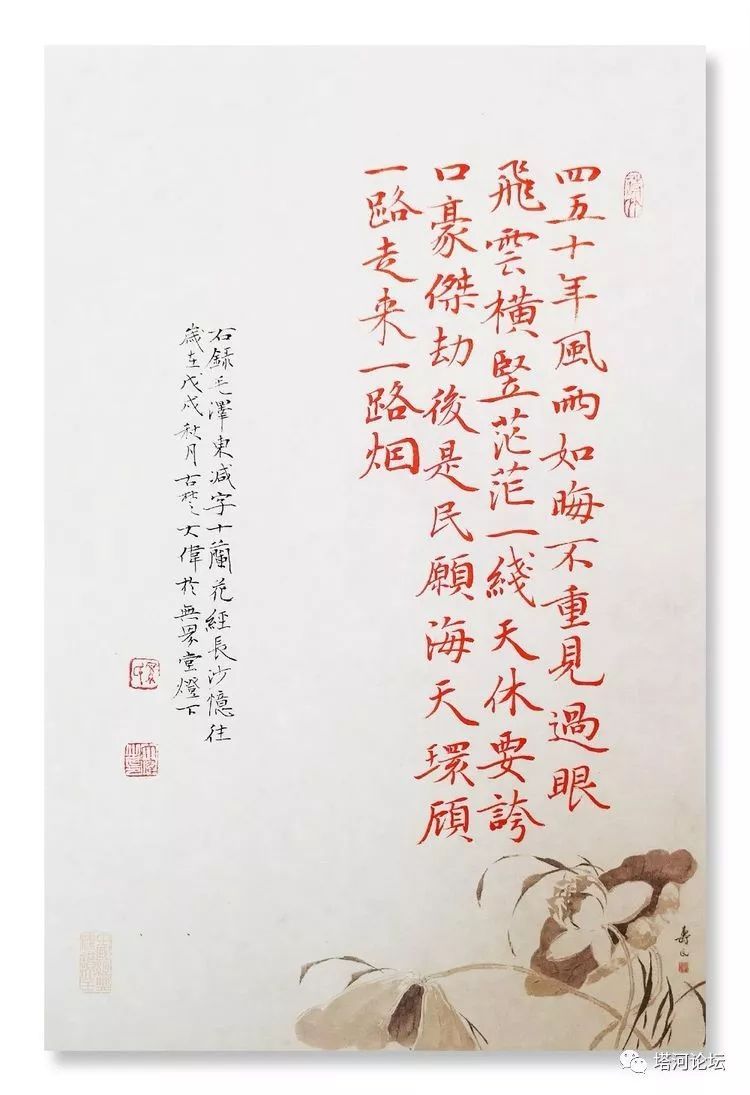 四五十年風雨如晦不重見過眼
飛雲橫竪茫茫一綫天休要誇
口豪傑劫後是民願海天環顧
一路走来一路烟
右録毛澤東减字木蘭花經長沙憶往
歲在戊戌秋月古楚大偉於無界堂燈下
壽民
塔河论坛